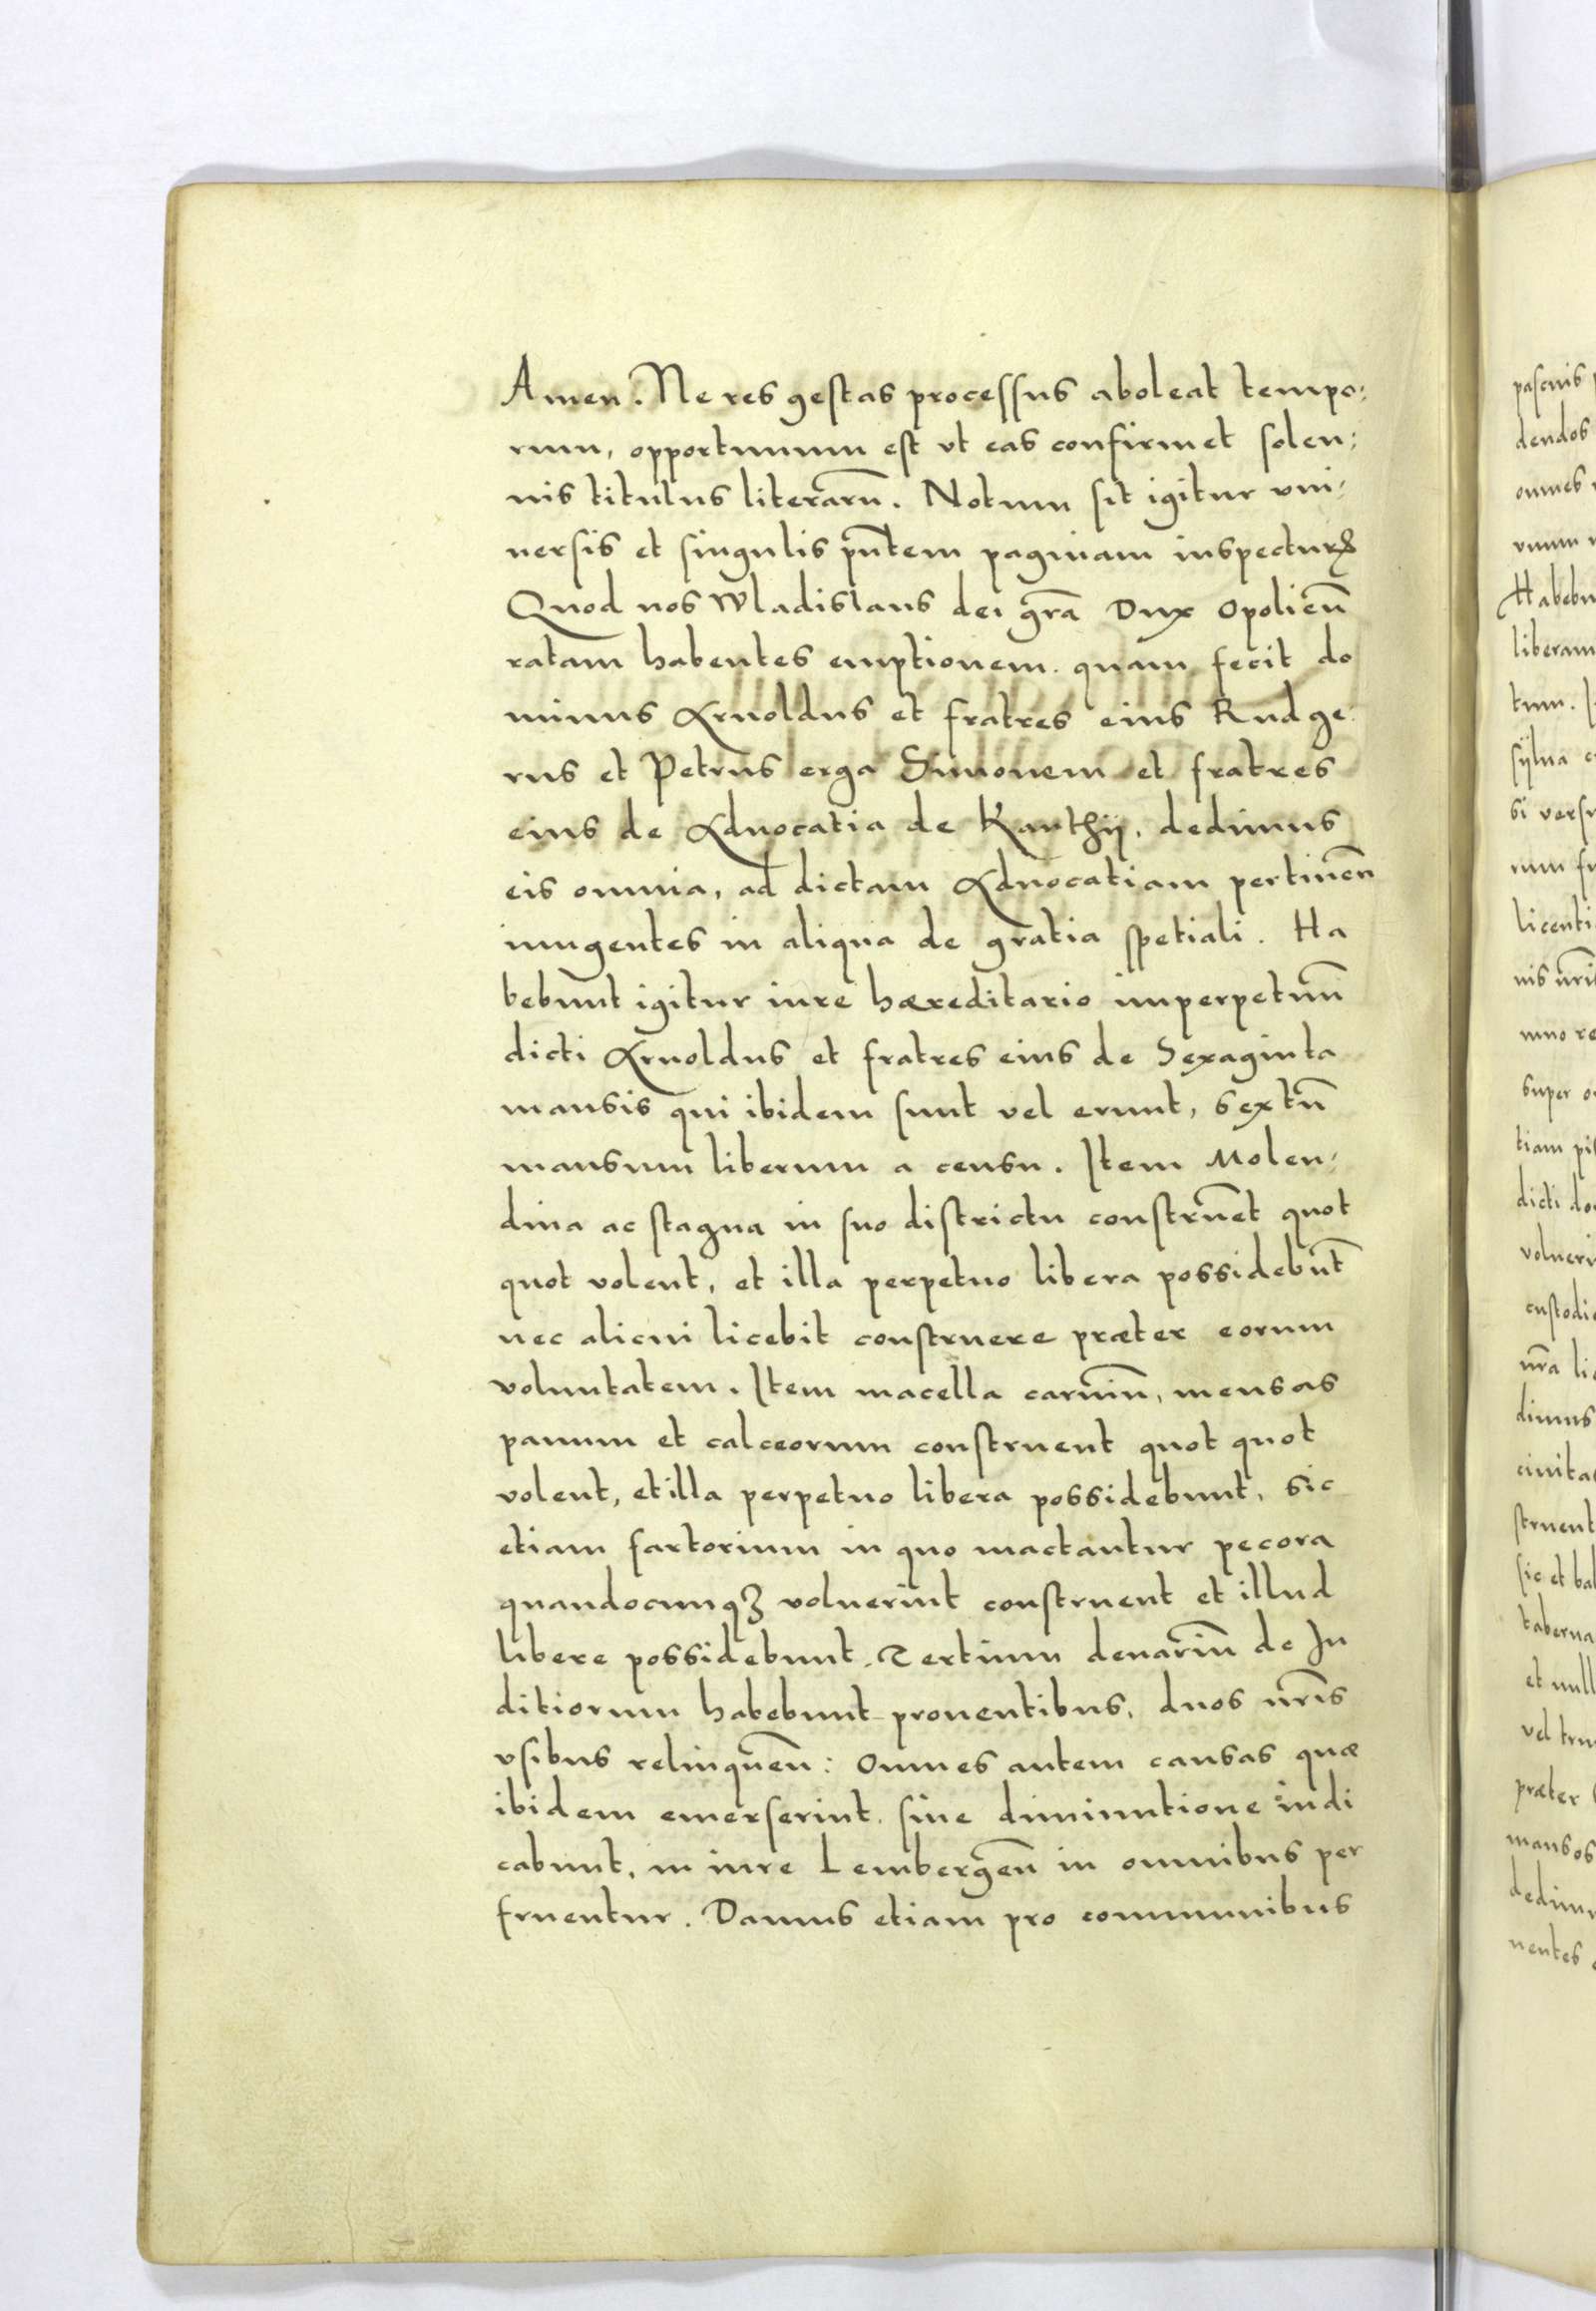 Amen. Ne res gestas processus aboleat tempo:
rum, opportunum est vt eas confirmet solen:
nis titulus literarū. Notum sit igitur vni:
uersis et singulis pn̄tem paginam inspecturꝭ
Quod nos Wladislaus dei gr̄a Dux Opolien̄
ratam habentes emptionem. quam fecit do
minus Arnoldus et fratres eius Rudge
rus et Petrus erga Simonem et fratres
eius de Aduocatia de Kanthij, dedimus
eis omnia, ad dictam Aduocatiam pertinen̄
iungentes in aliqua de gratia spetiali. Ha
bebunt igitur iure hæreditario imperpetuū
dicti Arnoldus et fratres eius de Sexaginta
mansis qui ibidem sunt vel erunt, sextū
mansum liberum a censu. Item Molen:
dina ac stagna in suo districtu construēt quot
quot volent, et illa perpetuo libera possidebūt
nec alicui licebit construere præter eorum
voluntatem. Item macella carniū, mensas
panum et calceorum construent quot quot
volent, et illa perpetuo libera possidebunt, sic
etiam fartorium in quo mactantur pecora
quandocunqꝫ voluerint construent et illud
libere possidebunt. Tertium denariū de Iu
ditiorum habebunt prouentibus, duos nr̄is
vsibus relinquen̄: Omnes autem causas quæ
ibidem emerserint. sine diminutione iudi
cabunt, in iure Lembergen̄ in omnibus per
fruentur. Damus etiam pro communibus
pascuis
dendos
omnes
vnum
Habebu
liberam
tum.
sylua
si versu
rum fr
licenti
nis nr̄i
mno re
super
tiam pis
dicti do
volueri
custodi
nr̄a li
dimus
ciuita
struent
sic et bal
taberna
et null
vel tru
præter
mansos
dedimu
nentes